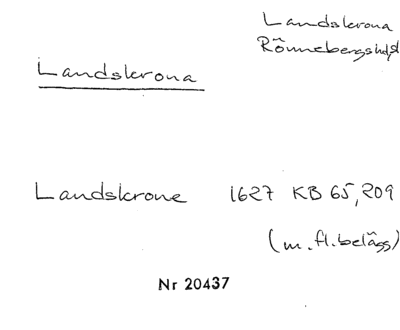 Landskrona
Rönnebergs hd,
Landskrona
Landskrone 1627 KB 65,209
(m.fl.belägg)
Nr 20437